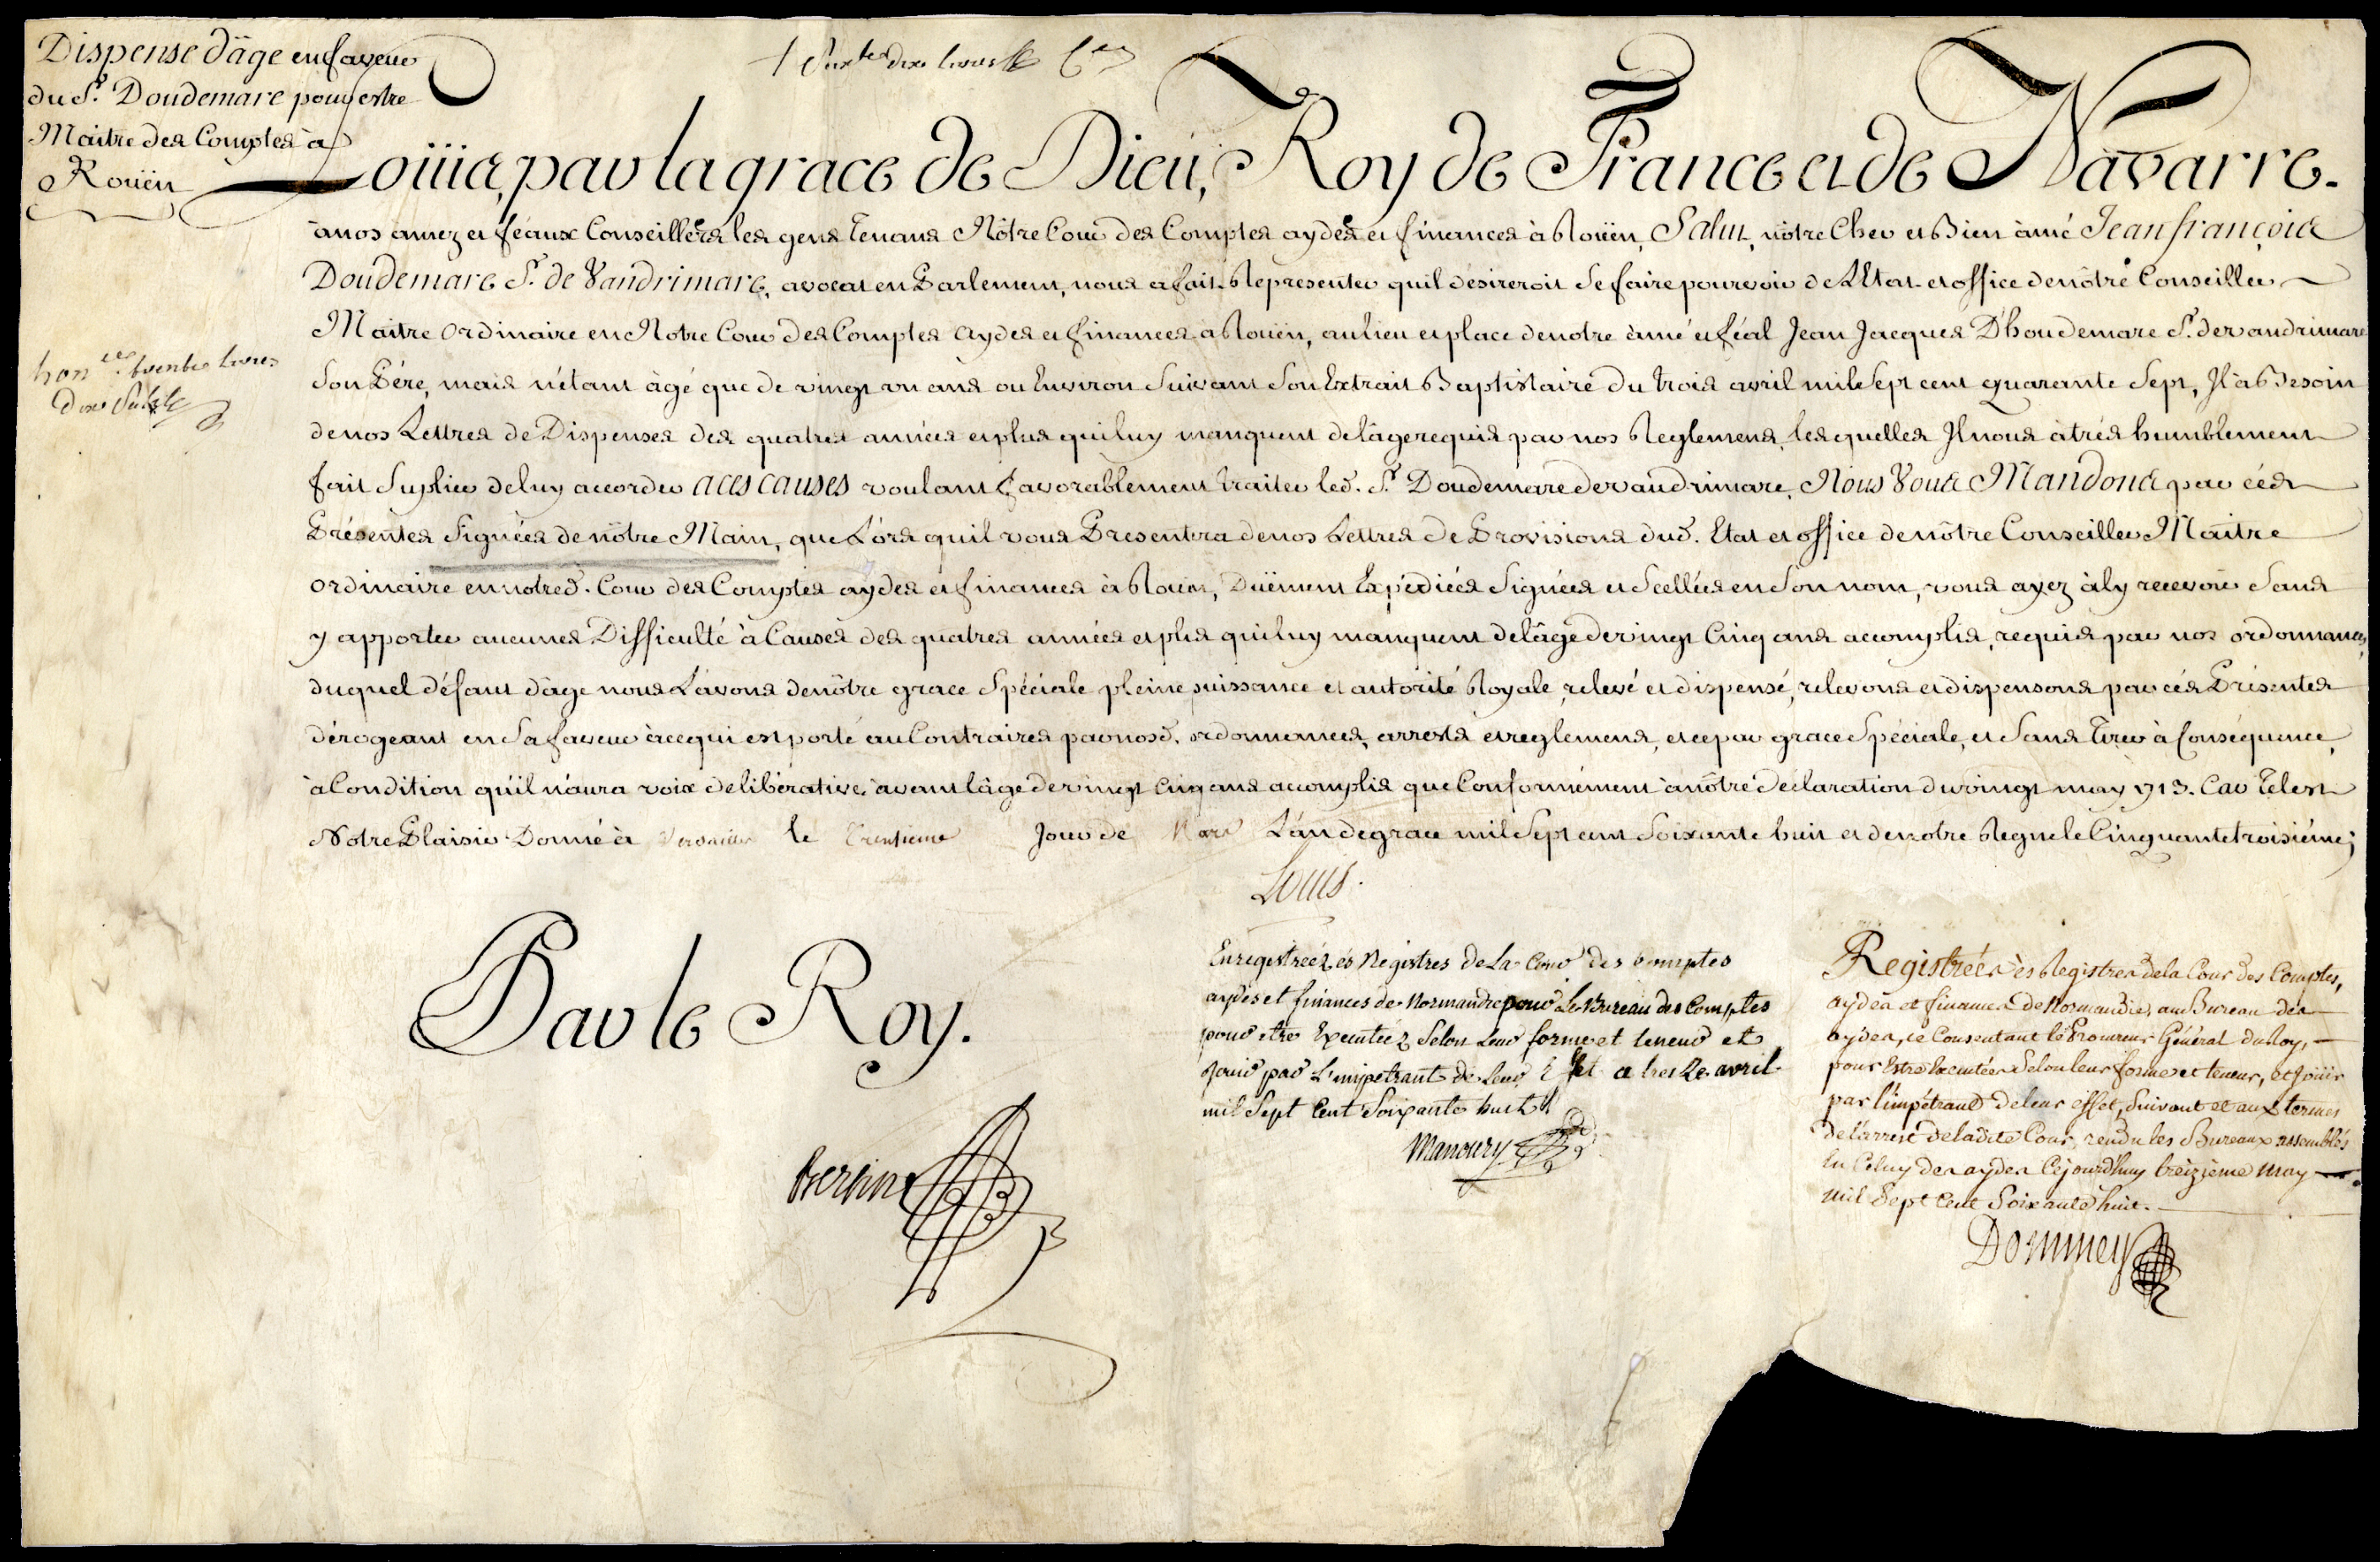 Dispense d'âge en faveur
du Sr. Doudemare pour estre
Maitre des Comptes à
Roüen
Loüis, par la grace de Dieu, Roy de France et de Navarre.
à nos amez et féaux Conseillers les gens tenans Nôtre Cour des Comptes aydes et finances à Roüen, Salut, nôtre Cher et Bien àmé Jean françois
Doudemare Sr. de Vandrimare, avocat en Parlement, nous a fait Representer quil désireroit se faire pourvoir de L'Etat et office de nôtre Conseiller
Maitre Ordinaire en Notre Cour des Comptes Aydes et finances a Roüen, au lieu et place de notre àmé et féal Jean Jacques D'houdemare Sr. de Vandrimare
son Pére, mais n'étant àgé que de vingt un ans ou Environ suivant son Extrait Baptistaire du trois avril mil sept cent quarante sept, Il à Besoin
de nos Lettres de Dispenses des quatres années et plus qui luy manquent de l'âge requis par nos Reglemens, lesquelles Il nous à trés humblement
fait suplier de luy accorder aces causes voulant favorablement traiter led. Sr. Doudemare de Vandrimare, Nous Vous Mandons par cés
Présentes signées de nôtre Main, que Lors quil vous Presentera de nos Lettres de Provisions dud. Etat et office de nôtre Conseiller Maitre
ordinaire en notred. Cour des Comptes aydes et finances à Roüen, Düement Expédiées signées et scellées en son nom, vous ayez à l'y recevoir sans
y apporter aucunes Difficulté à Causes des quatres années et plus qui luy manquent de l'âge de vingt Cinq ans accomplis, requis par nos ordonnances,
duquel défaut d'âge nous L'avons de nôtre grace Spéciale pleine puissance et autorité Royale, relevé et dispensé, relevons et dispensons par cés Présentes
dérogeant en sa faveur à ce qui est porté au Contraires par nosd. ordonnances, arrests et reglemens, et ce par grace Spéciale, et sans tirer à Conséquence,
à Condition qu'il n'aura voix délibérative avant l'âge de vingt Cinq ans accomplis que Conformément à nôtre déclaration du vingt may 1713. Car tel est
Notre Plaisir Donné à Versailles le trentieme Jour de Mars L'an de grace mil sept cent soixante huit et de notre Regne le Cinquante troisiéme;
Louis.
hon.res trente livres
Par le Roy.
Bertin
Enregistreéz és Registres de La Cour des Comptes
aydes et finances de Normandie pour Le Bureau des Comptes
pour etre Executeez Selon Leur forme et teneur et
Jouir par L'impetrant de Leur Effet avril
mil Sept Cent Soixante huit
Manoury
Registrées ès Registres de la Cour des Comptes,
aydes et finances de Normandie, au Bureau des
aydes, ce Consentant le Procureur Général du Roy,
pour Estre Executées selon leur forme et teneur, et Joüir
par l'impétrant de leur effet, suivant et aux termes
de l'arrest de ladite Cour, rendu les Bureaux assemblés
En Celuy des aydes Cejourd'huy treizieme May
mil Sept Cent Soixante huit.
Dommey